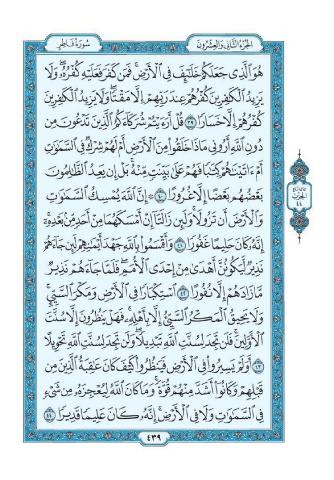 سُورَةُ فَاطِرٍ
الجُزْءُ الثَّانِي وَالعِشْرُونَ
هُوَ ٱلَّذِي جَعَلَكُمْ خَلَٰٓئِفَ فِي ٱلْأَرْضِ ۚ فَمَن كَفَرَ فَعَلَيْهِ كُفْرُهُۥ ۖ وَلَا
يَزِيدُ ٱلْكَٰفِرِينَ كُفْرُهُمْ عِندَ رَبِّهِمْ إِلَّا مَقْتًا ۖ وَلَا يَزِيدُ ٱلْكَٰفِرِينَ
كُفْرُهُمْ إِلَّا خَسَارًا ٣٩ قُلْ أَرَءَيْتُمْ شُرَكَآءَكُمُ ٱلَّذِينَ تَدْعُونَ مِن
دُونِ ٱللَّهِ أَرُونِي مَاذَا خَلَقُوا۟ مِنَ ٱلْأَرْضِ أَمْ لَهُمْ شِرْكٌ فِي ٱلسَّمَٰوَٰتِ
أَمْ ءَاتَيْنَٰهُمْ كِتَٰبًا فَهُمْ عَلَىٰ بَيِّنَتٍ مِّنْهُ ۚ بَلْ إِن يَعِدُ ٱلظَّٰلِمُونَ
بَعْضُهُم بَعْضًا إِلَّا غُرُورًا ٤٠ ۞ إِنَّ ٱللَّهَ يُمْسِكُ ٱلسَّمَٰوَٰتِ
وَٱلْأَرْضَ أَن تَزُولَا ۚ وَلَئِن زَالَتَآ إِنْ أَمْسَكَهُمَا مِنْ أَحَدٍ مِّنۢ بَعْدِهِۦٓ ۚ
إِنَّهُۥ كَانَ حَلِيمًا غَفُورًا ٤١ وَأَقْسَمُوا۟ بِٱللَّهِ جَهْدَ أَيْمَٰنِهِمْ لَئِن جَآءَهُمْ
نَذِيرٌ لَّيَكُونُنَّ أَهْدَىٰ مِنْ إِحْدَى ٱلْأُمَمِ ۖ فَلَمَّا جَآءَهُمْ نَذِيرٌ
مَّا زَادَهُمْ إِلَّا نُفُورًا ٤٢ ٱسْتِكْبَارًا فِي ٱلْأَرْضِ وَمَكْرَ ٱلسَّيِّئِ ۚ
وَلَا يَحِيقُ ٱلْمَكْرُ ٱلسَّيِّئُ إِلَّا بِأَهْلِهِۦ ۚ فَهَلْ يَنظُرُونَ إِلَّا سُنَّتَ
ٱلْأَوَّلِينَ ۚ فَلَن تَجِدَ لِسُنَّتِ ٱللَّهِ تَبْدِيلًا ۖ وَلَن تَجِدَ لِسُنَّتِ ٱللَّهِ تَحْوِيلًا
٤٣ أَوَلَمْ يَسِيرُوا۟ فِي ٱلْأَرْضِ فَيَنظُرُوا۟ كَيْفَ كَانَ عَٰقِبَةُ ٱلَّذِينَ مِن
قَبْلِهِمْ وَكَانُوٓا۟ أَشَدَّ مِنْهُمْ قُوَّةً ۚ وَمَا كَانَ ٱللَّهُ لِيُعْجِزَهُۥ مِن شَيْءٍ
فِي ٱلسَّمَٰوَٰتِ وَلَا فِي ٱلْأَرْضِ ۚ إِنَّهُۥ كَانَ عَلِيمًا قَدِيرًا ٤٤
الحزب
٤٤
٤٣٩